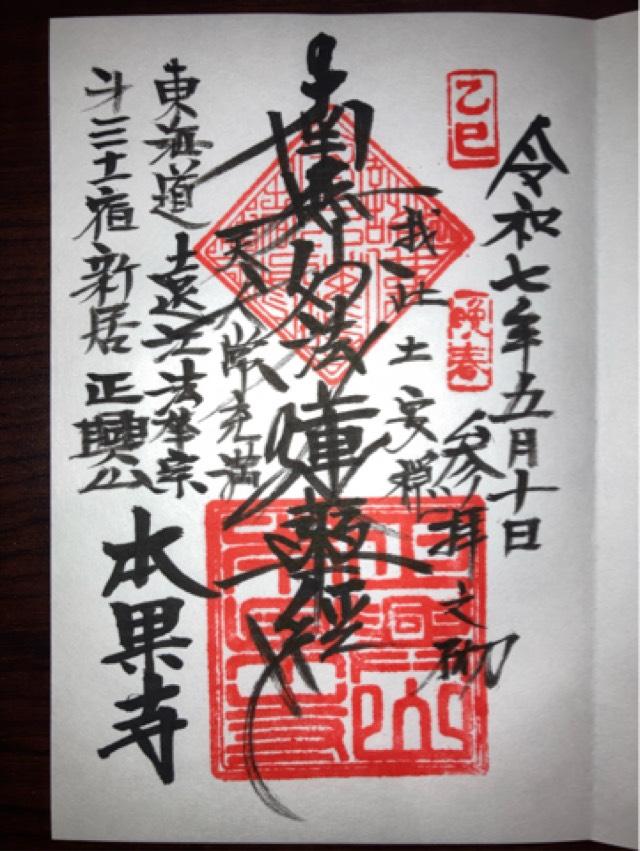 令和七年五月十日
乙巳
晩春
参拝之砌
我此土安穏
南無妙法蓮華経
天人常充満
東海道 遠江法華宗
第三十一宿 新居 正興山
本果寺
正興山
本果寺